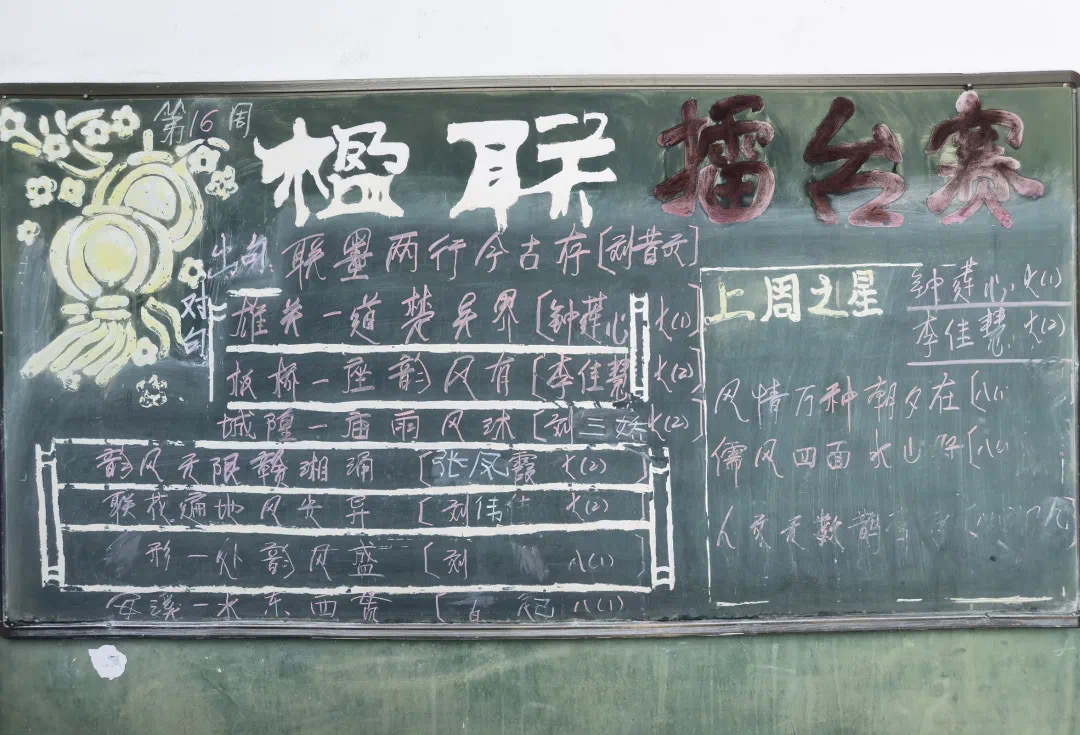 第16周
楹联擂台赛
出句 联墨两行今古存[刘昔云]
对句
雄关一道楚吴界[钟莲心 七(1)]
板桥一座韵风有[李佳慧 七(2)]
城隍一庙雨风沐[刘三 七(2)]
韵风无限赣湘涌 [张凤霞 七(2)]
联花遍地风光异 [刘伟 七(2)]
形一处韵风盛 [刘 八(1)]
一水东西贯 [ 八(1)
上周之星
钟莲心 七(1)
李佳慧 七(2)
风情万种朝夕在[八(
儒风四面水山
人文无数